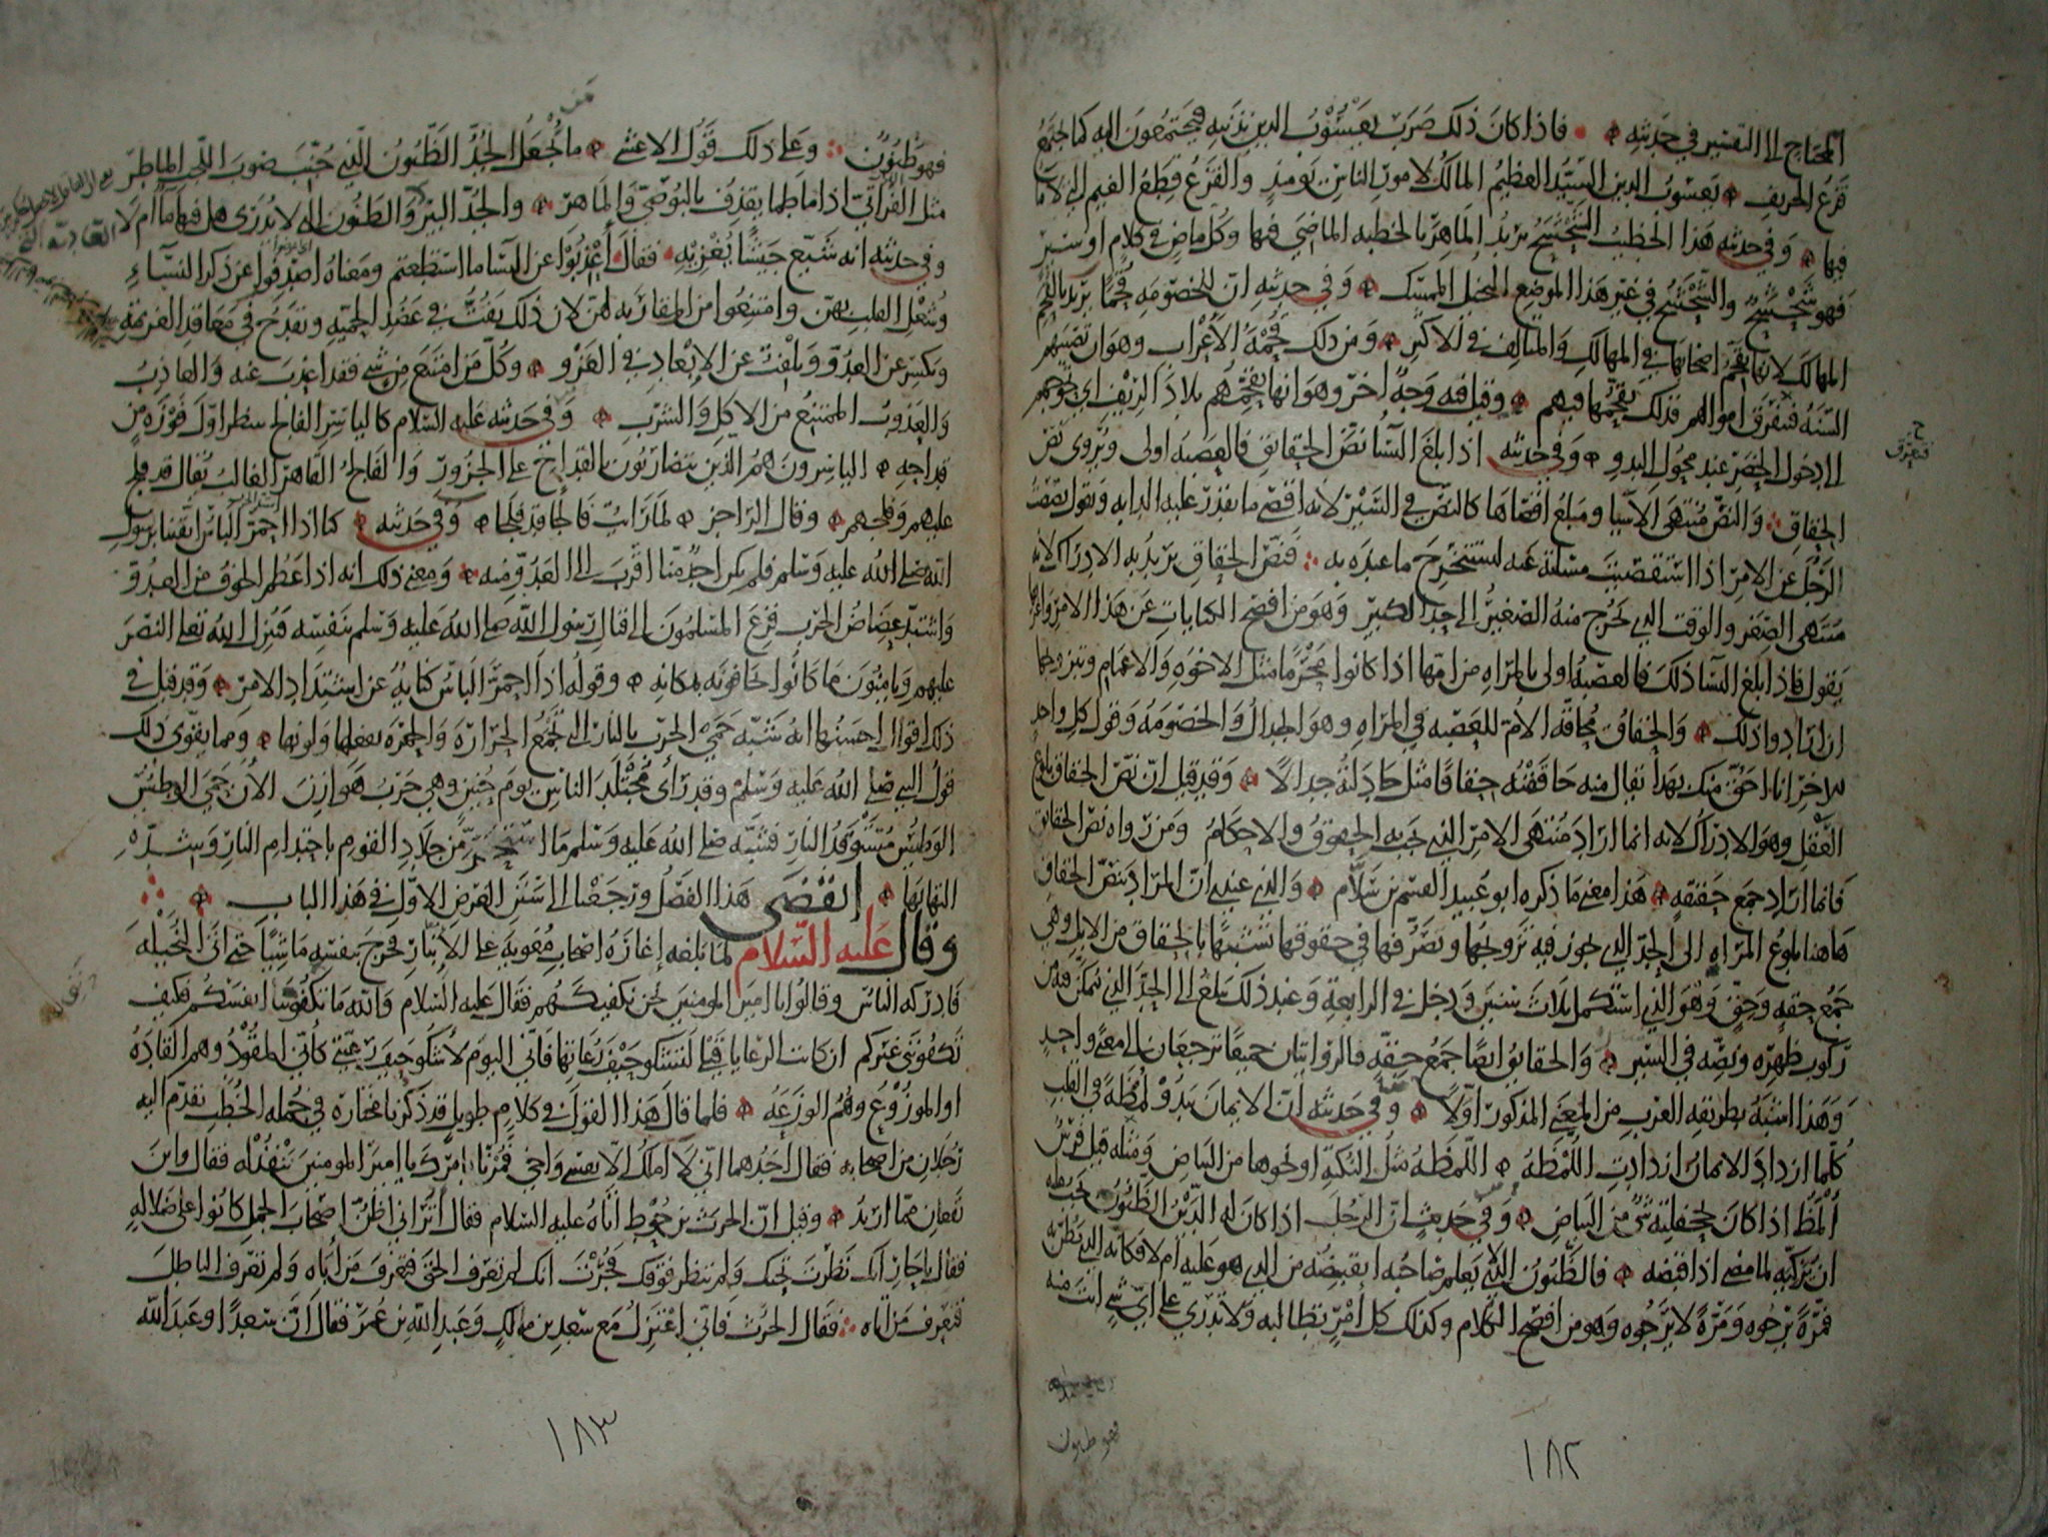 المحتاج الى التفسير في حديثه فاذا كان ذلك ضرب يعسوب الدين بذنبه فيجتمعون اليه كما يجتمع
قزع الخريف يعسوب الدين السيد العظيم المالك لامور الناس يومئذ والقزع قطع الغيم التي لا ما
فيها وفي حديثه هذا الخطيب الشحشح يريد الماهر بالخطبه الماضي فيها وكل ماض في كلام او سير
فهو شحشح والشحشح في غير هذا الموضع البخيل الممسك وفي حديثه ان للخصومه قحما يريد بالقحم
المهالك لانها تقحم اصحابها في المهالك والمتالف في الاكثر ومن ذلك قحمة الاعراب وهو ان تصيبهم
السنة فتفرق اموالهم فذلك تقحمها فيهم وقيل فيه وجه اخر وهو انها تقحمهم بلاد الريف اي تحوجهم
الى دخول الحضر عند محول البدو وفي حديثه اذا بلغ النسا نص الحقائق فالعصبه اولى ويروى نص
الحقاق والنص منتهى الاشيا ومبلغ اقصاها كالنص في السير لانه اقصى ما تقدر عليه الدابه وتقول نصصت
الرجل عن الامر اذا استقصيت مسئلته عنه لتستخرج ما عنده به فنص الحقاق يريد به الادراك لانه
منتهى الصغر والوقت الذي يخرج منه الصغير الى حد الكبير وهو من افصح الكنايات عن هذا الامر واغربها
يقول فاذا بلغ النسا ذلك فالعصبة اولى بالمراه من امها اذا كانوا محرما مثل الاخوه والاعمام وبتزويجها
ان ارادوا ذلك والحقاق محاقة الام للعصبه في المراه وهو الجدال والخصومه وقول كل واحد
للاخر انا احق منك بهذا يقال منه حاققته حقاقا مثل جادلته جدالا وقد قيل ان نص الحقاق بلوغ
العقل وهو الادراك لانه انما اراد منتهى الامر الذي تجب به الحقوق والاحكام ومن رواه نص الحقائق
فانما اراد جمع حقيقه هذا معنى ما ذكره ابو عبيد القسم بن سلام والذي عندي ان المراد بنص الحقاق
هاهنا بلوغ المراه الى الحد الذي يجوز فيه تزويجها وتصرفها في حقوقها تشبيها بالحقاق من الابل وهي
جمع حقه وحق وهو الذي استكمل ثلاث سنين ودخل في الرابعة وعند ذلك يبلغ الى الحد الذي يتمكن فيه من
ركوب ظهره ونصه في السير والحقائق ايضا جمع حقه فالروايتان جميعا ترجعان الى معنى واحد
وهذا اشبه بطريقه العرب من المعنى المذكور اولا وفي حديثه ان الايمان يبدو لمظة في القلب
كلما ازداد الايمان ازدادت اللمظة اللمظه مثل النكتة او نحوها من البياض ومنه قيل فرس
المظ اذا كان بجحفلته شي من البياض وفي حديثه ان الرجل اذا كان له الدين الظنون يجب عليه
ان يزكيه لما مضى اذا قبضه فالظنون الذي لا يعلم صاحبه ايقبضه من الذي هو عليه ام لا فكانه الذي يظن به
فمرة يرجوه ومرة لا يرجوه وهو من افصح الكلام وكذلك كل امر تطالبه ولا تدري على اي شي انت منه
فهو ظنون
١٨٢
فهو ظنون وعلى ذلك قول الاعشى ما يجعل الجد الظنون الذي جنب صوب اللجب الماطر
مثل الفراتي اذا ما طما يقذف بالبوصي والماهر والجد البئر والظنون التي لا يدرى هل فيها ما ام لا
وفي حديثه انه شيع جيشا يغزيه فقال اعذبوا عن النسا ما استطعتم ومعناه اصدفوا عن ذكر النساء
وشغل القلب بهن وامتنعوا من المقاربة لهن لان ذلك يفت في عضد الحمية ويقدح في معاقد العزيمة
ويكسر عن العدو ويلفت عن الابعاد في الغزو وكل من امتنع من شي فقد اعذب عنه والعاذب
والعذوب الممتنع من الاكل والشرب وفي حديثه عليه السلام كالياسر الفالج ينتظر اول فوزه من
قداحه الياسرون هم الذين يتضاربون بالقداح على الجزور والفالج القاهر الغالب يقال قد فلج
عليهم وفلجهم وقال الراجز لما رايت فالجا قد فلجا وفي حديثه كنا اذا احمر الباس اتقينا برسول
الله صلى الله عليه وسلم فلم يكن احد منا اقرب الى العدو منه ومعنى ذلك انه اذا عظم الخوف من العدو
واشتد عضاض الحرب فزع المسلمون الى قتال رسول الله صلى الله عليه وسلم بنفسه فينزل الله تعالى النصر
عليهم ويامنون ما كانوا يخافونه بمكانه وقوله اذا احمر الباس كناية عن اشتداد الامر وقد قيل في
ذلك اقوال احسنها انه شبه حمي الحرب بالنار التي تجمع الحراره والحمره بفعلها ولونها ومما يقوى ذلك
قول النبي صلى الله عليه وسلم وقد راى مجتلد الناس يوم حنين وهي حرب هوازن الان حمي الوطيس
الوطيس مستوقد النار فشبه صلى الله عليه وسلم ما استحر من جلاد القوم باحتدام النار وشدة
التهابها انقضى هذا الفصل ورجعنا الى سنن الغرض الاول في هذا الباب
وقال عليه السلام لما بلغه اغارة اصحاب معوية على الانبار فخرج بنفسه ماشيا حتى اتى النخيلة
فادركه الناس وقالوا يا امير المومنين نحن نكفيكهم فقال عليه السلام والله ما تكفونني انفسكم فكيف
تكفونني غيركم ان كانت الرعايا قبلي لتشكو حيف رعاتها فاني اليوم لاشكو حيف رعيتي كانني المقود وهم القادة
او الموزوع وهم الوزعه فلما قال هذا القول في كلام طويل قد ذكرنا مختاره في جمله الخطب تقدم اليه
رجلان من اصحابه فقال احدهما اني لا املك الا نفسي واخي فمرنا بامرك يا امير المومنين ننفذ له فقال واين
تقعان مما اريد وقيل ان الحرث بن حوط اتاه عليه السلام فقال اتراني اظن اصحاب الجمل كانوا على ضلاله
فقال يا حار انك نظرت تحتك ولم تنظر فوقك فجرت انك لم تعرف الحق فتعرف من اتاه ولم تعرف الباطل
فتعرف من اتاه فقال الحرث فاني اعتزل مع سعد بن مالك وعبد الله بن عمر فقال ان سعدا وعبد الله
١٨٣